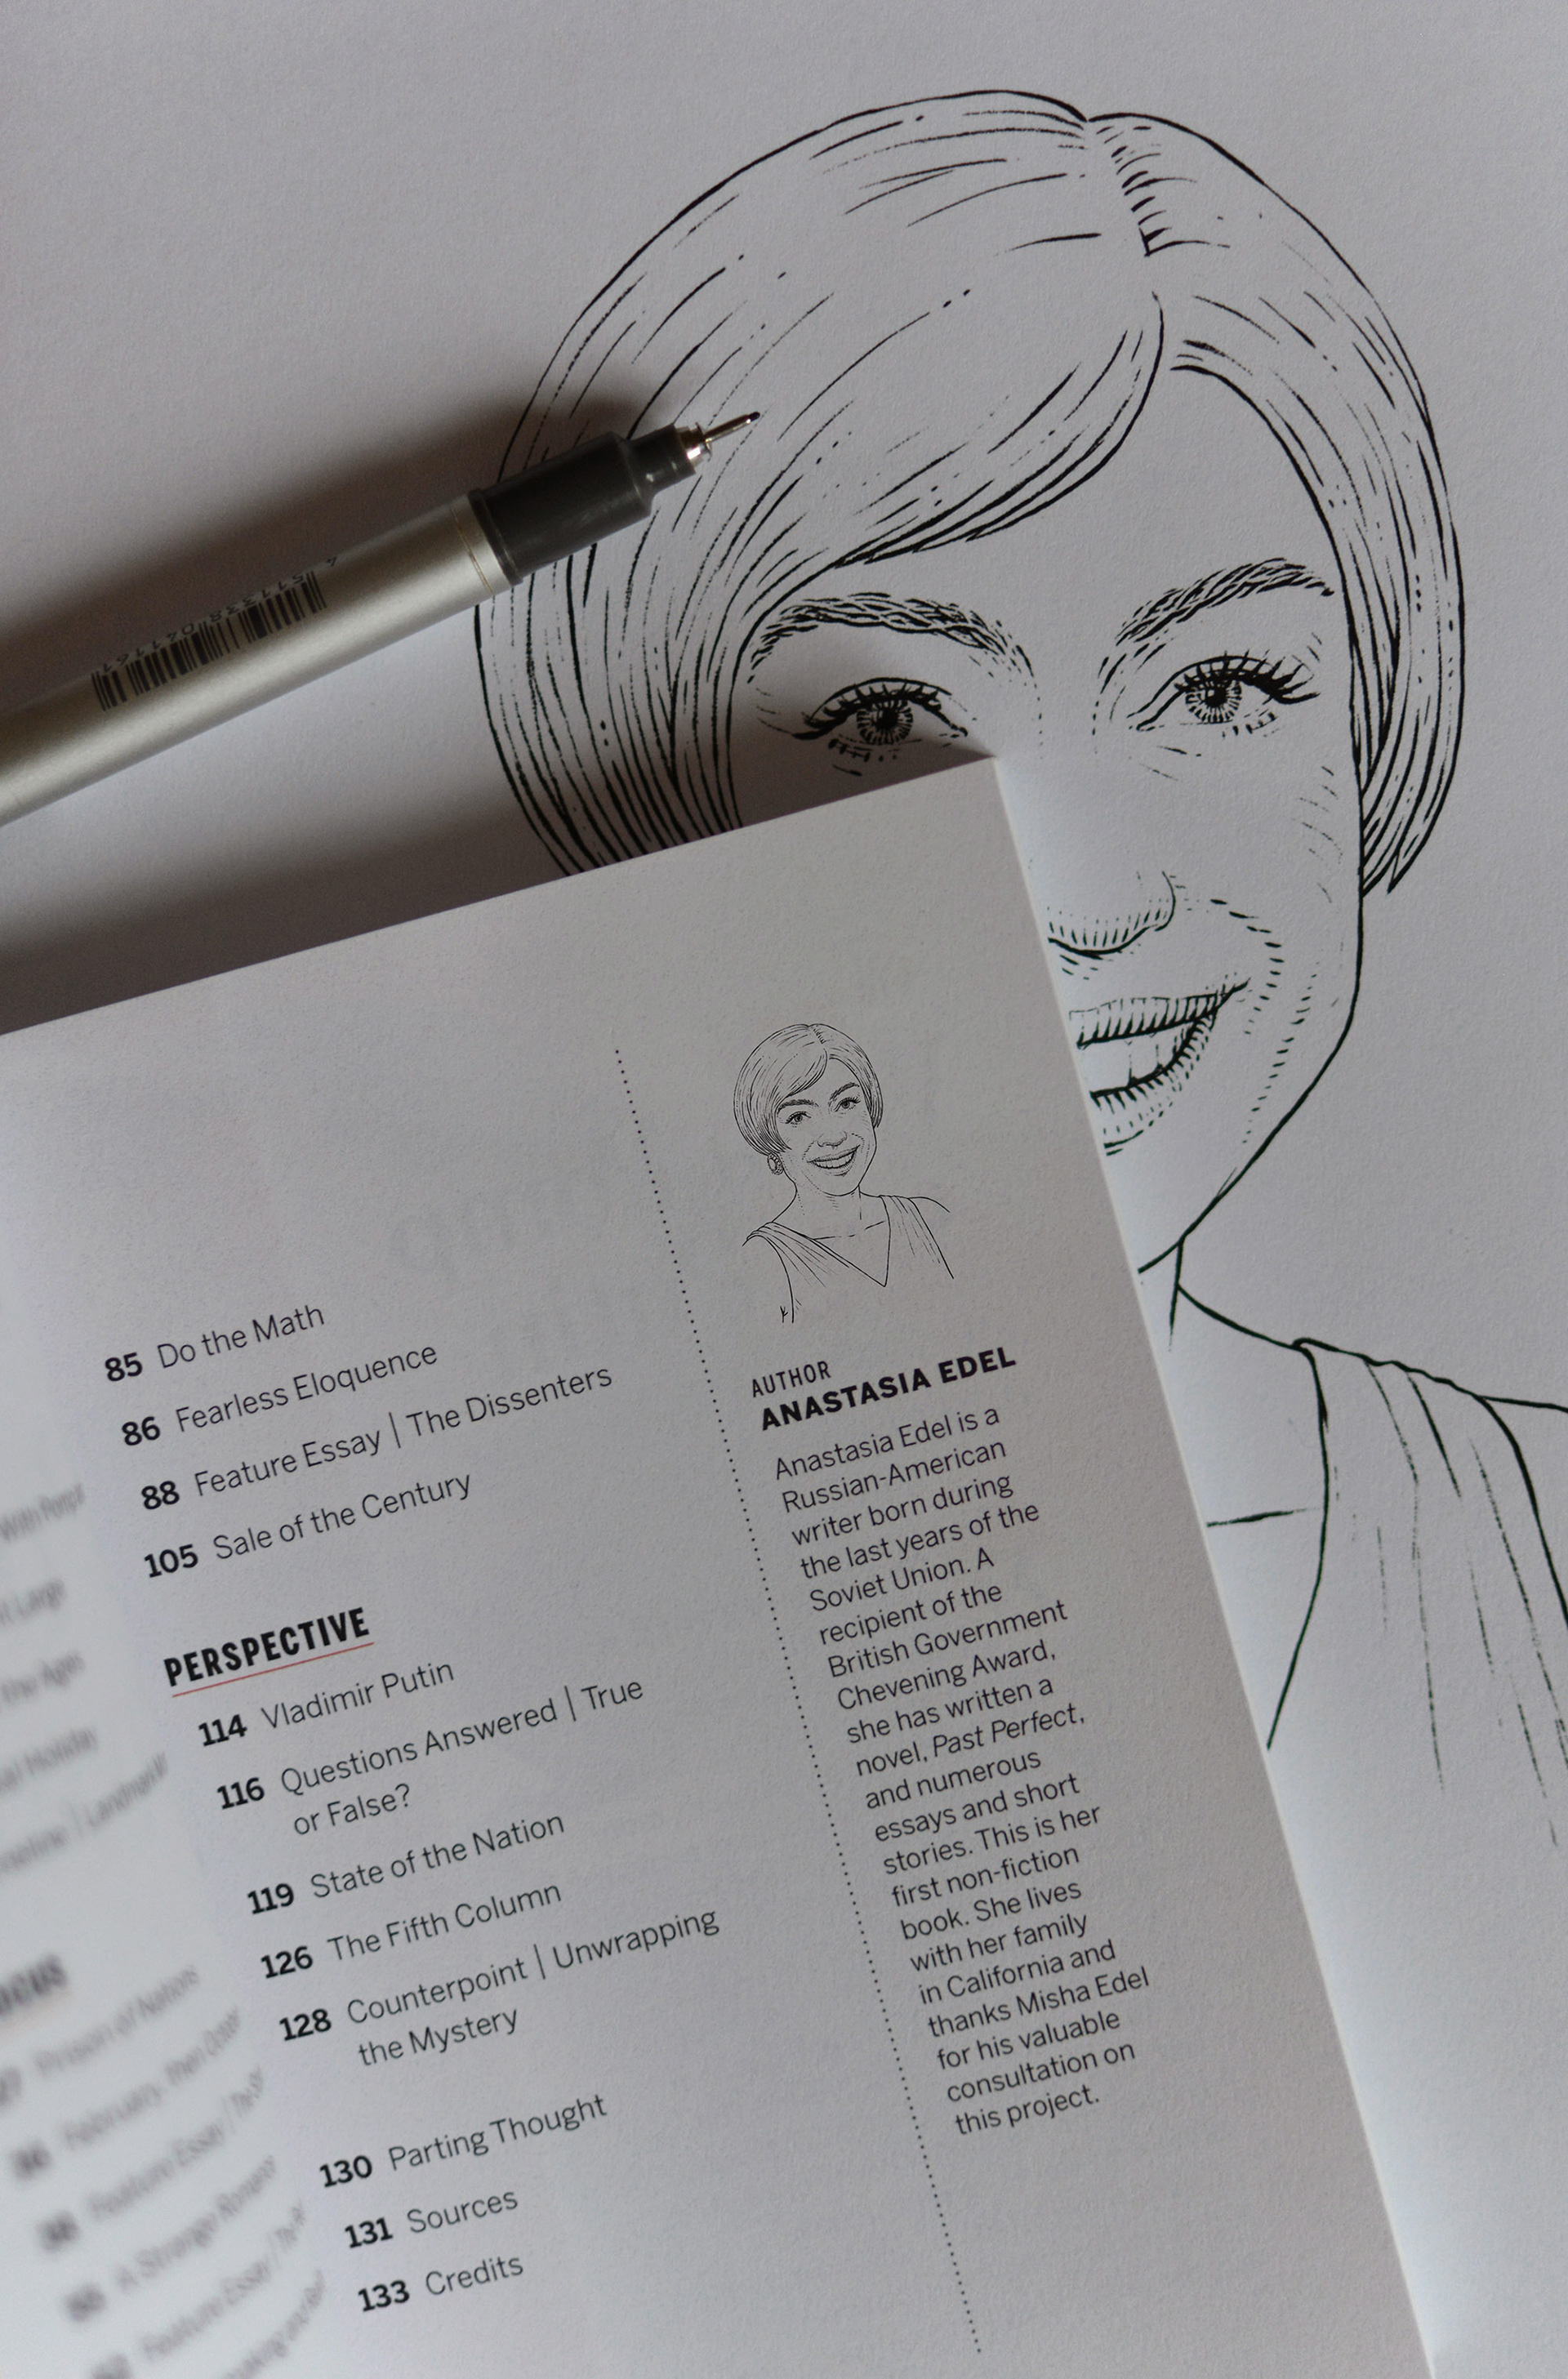 85 Do the Math
86 Fearless Eloquence
88 Feature Essay | The Dissenters
105 Sale of the Century
PERSPECTIVE
114 Vladimir Putin
116 Questions Answered | True
or False?
119 State of the Nation
126 The Fifth Column
128 Counterpoint | Unwrapping
the Mystery
130 Parting Thought
131 Sources
133 Credits
AUTHOR
ANASTASIA EDEL
Anastasia Edel is a
Russian-American
writer born during
the last years of the
Soviet Union. A
recipient of the
British Government
Chevening Award,
she has written a
novel, Past Perfect,
and numerous
essays and short
stories. This is her
first non-fiction
book. She lives
with her family
in California and
thanks Misha Edel
for his valuable
consultation on
this project.
the Ages
Landmark
Prison of Nations
February, then October
Feature Essay
A Strange Romance
Feature Essay